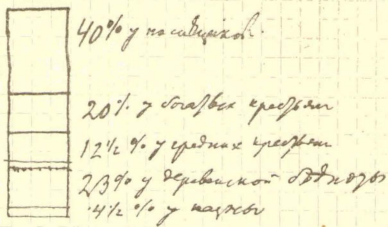 40% у помещиков.
20% у богатых крестьян
12½ % у средних крестьян
23% у деревенской бѣдноты
4½ % у казны